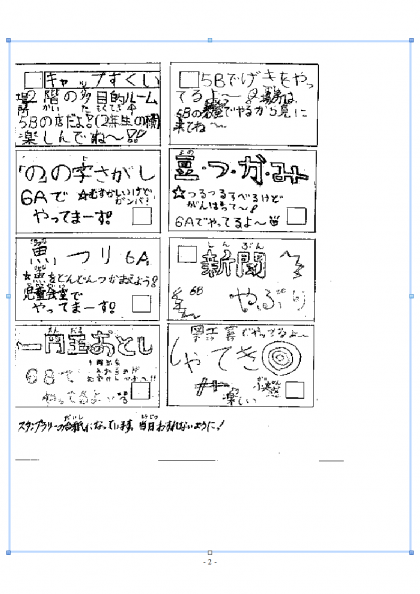 キャップすくい
場所 2階の多目的ルーム
5Bの店だよ！(2年生の隣)
楽しんでね〜!!
5Bでげきをやっ
てるよ〜 場所は、
5Bの教室でやるから見に
来てね〜
「の」の字さがし
6Aで ☆むずかしいけど
ガンバ!
やってまーす!
豆・つ・か・み
☆つるつるすべるけど
がんばって〜!
6Aでやってるよ〜
魚つり 6A
☆魚をどんどんつかまえよう!
児童会室で
やってまーす!
新聞
6B
やぶり
一円玉おとし
6Bで
図工室でやってるよ〜
しゃてき
楽しい
スタンプラリーの台紙になっています。当日わすれないように!
- 2 -